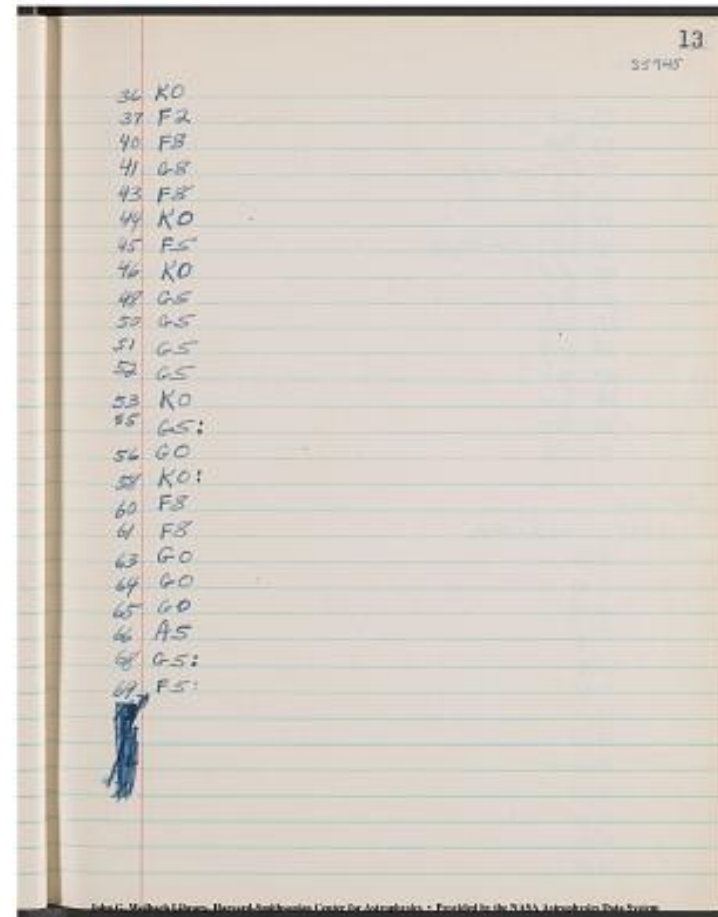 13
35945
36 K0
37 F2
40 F8
41 G8
43 F8
44 K0
45 F5
46 K0
48 G5
50 G5
51 G5
52 G5
53 K0
55 G5:
56 G0
58 K0:
60 F8
61 F8
63 G0
64 G0
65 G0
66 A5
68 G5:
69 F5:
John G. Wolbach Library, Harvard-Smithsonian Center for Astrophysics • Provided by the NASA Astrophysics Data System